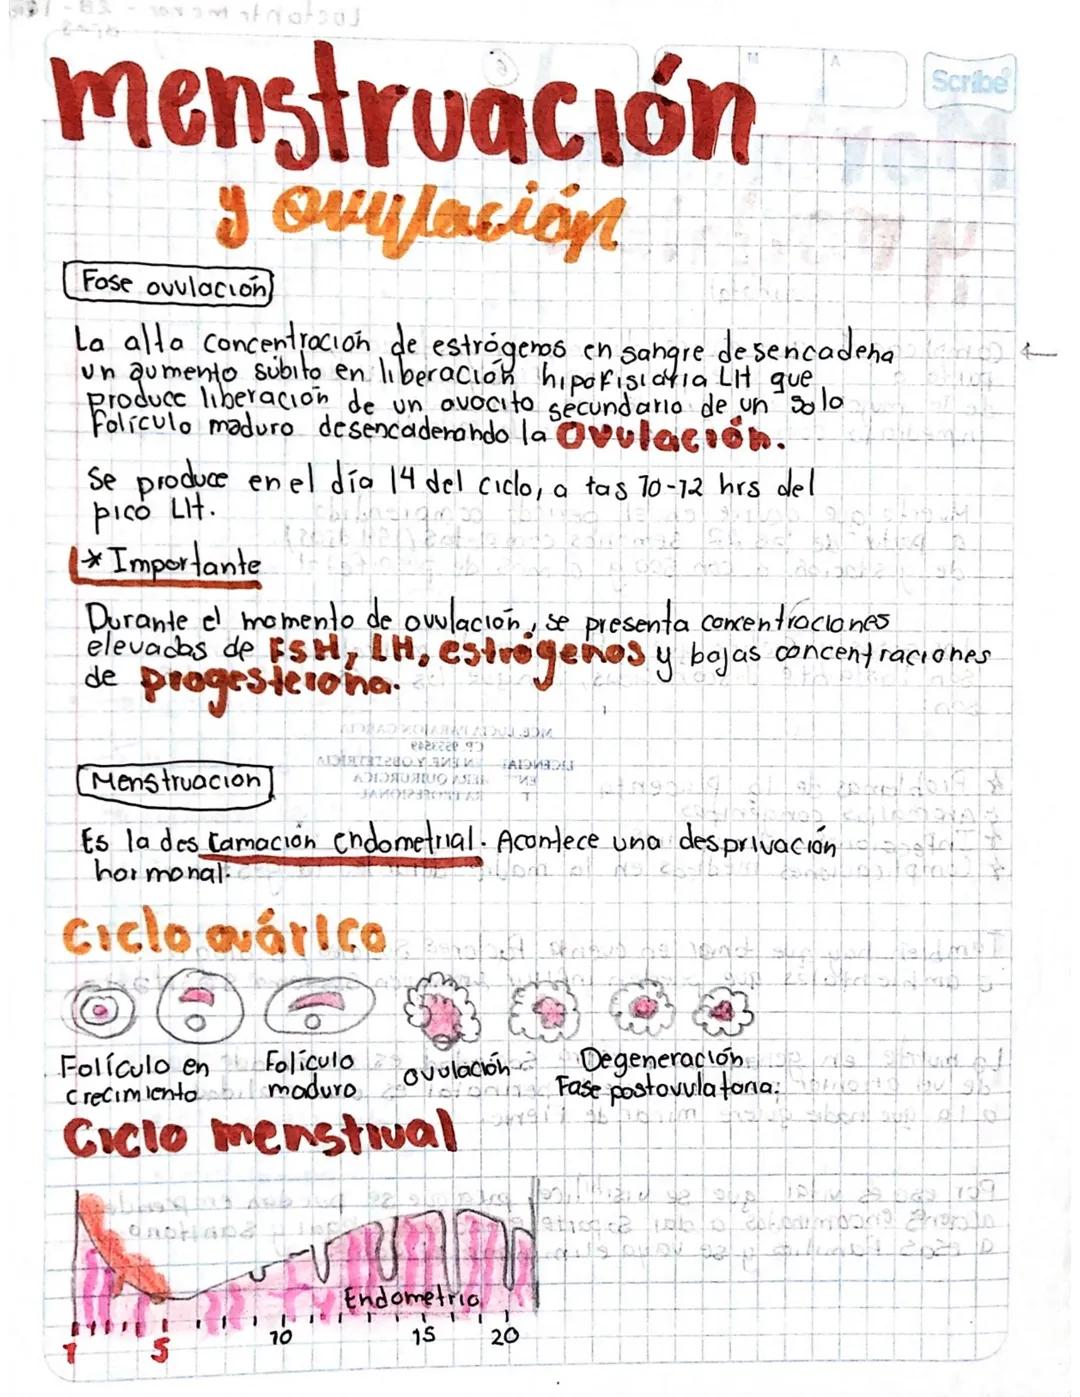 Scribe
menstruación
y ovulación
Fase ovulación
La alta concentración de estrógenos en sangre desencadena
un aumento súbito en liberación hipofisiaria LH que
produce liberación de un ovocito secundario de un solo
folículo maduro desencadenando la Ovulación.
Se produce en el día 14 del ciclo, a las 10-12 hrs del
pico LH.
* Importante
Durante el momento de ovulación, se presenta concentraciones
elevadas de FSH, LH, estrógenos y bajas concentraciones
de progesterona.
Menstruación
Es la descamación endometrial. Acontece una desprivación
hormonal.
Ciclo ovárico
Folículo en
crecimiento
Folículo
maduro
ovulación
Degeneración
Fase postovulatoria.
Ciclo menstrual
Endometrio
1 5 10 15 20